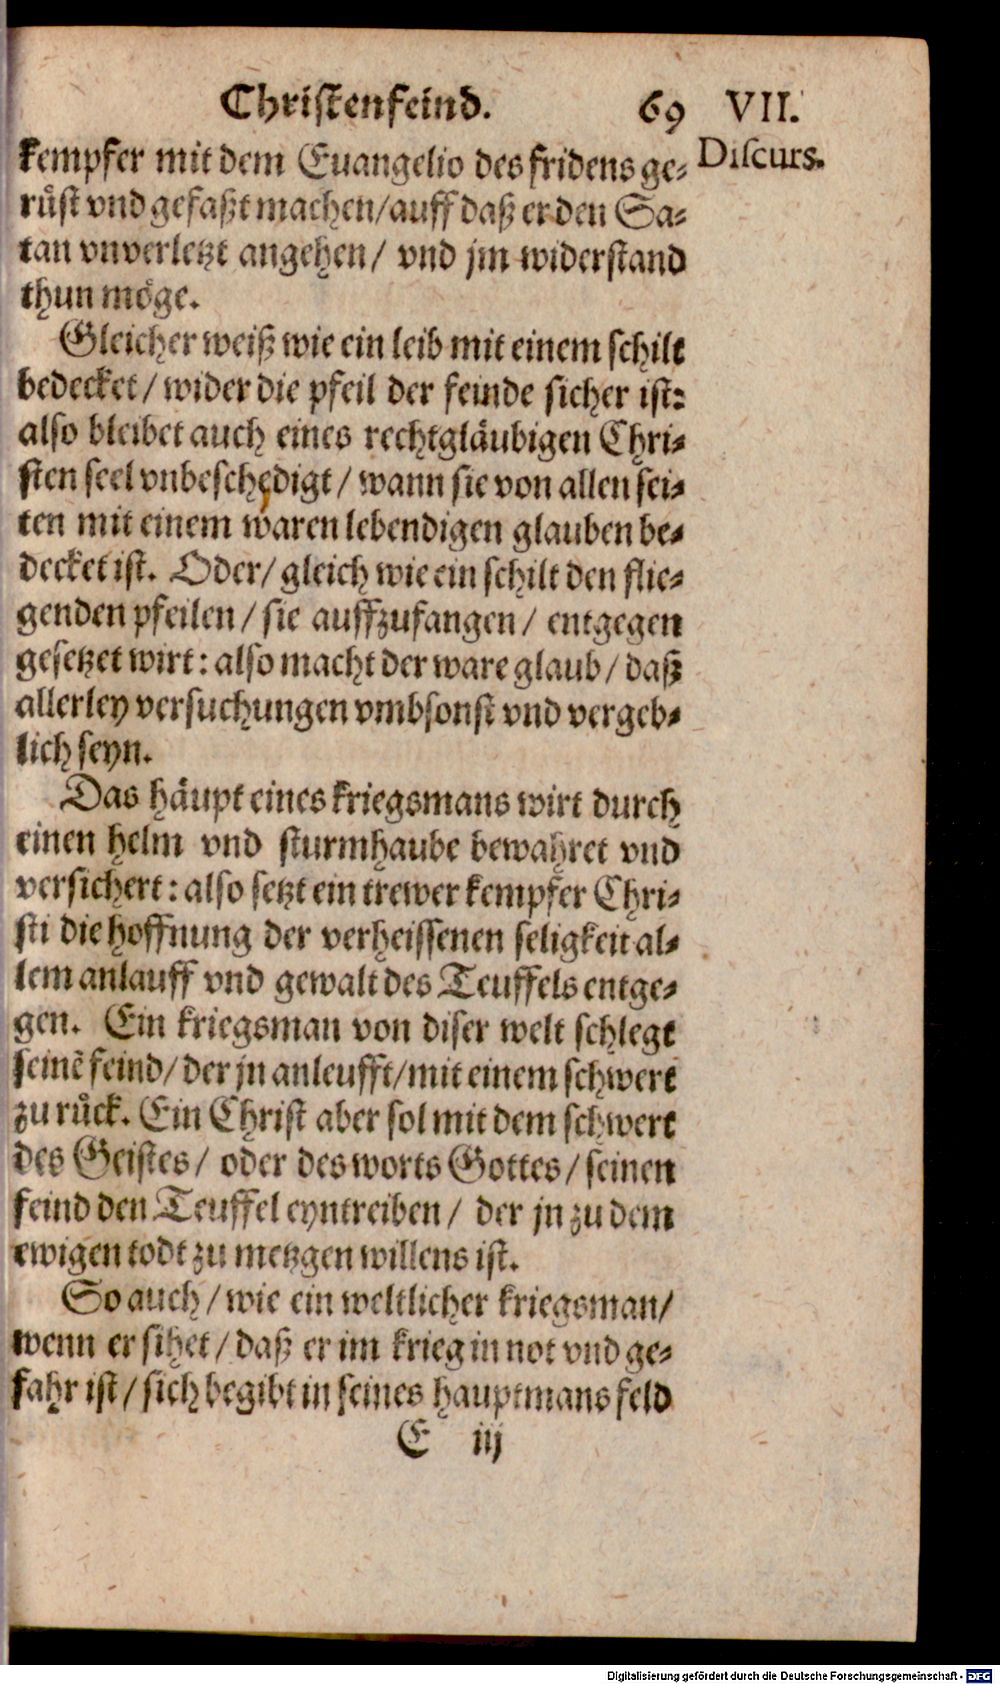 Christenfeind. 69 VII.
Discurs.
kempfer mit dem Euangelio des fridens ge-
rüst vnd gefaßt machen/auff daß er den Sa-
tan vnverletzt angehen/ vnd jm widerstand
thun möge.
Gleicher weiß wie ein leib mit einem schilt
bedecket/ wider die pfeil der feinde sicher ist:
also bleibet auch eines rechtgläubigen Chri-
sten seel vnbeschedigt/ wann sie von allen sei-
ten mit einem waren lebendigen glauben be-
decket ist. Oder/ gleich wie ein schilt den flie-
genden pfeilen/ sie auffzufangen/ entgegen
gesetzet wirt: also macht der ware glaub/ daß
allerley versuchungen vmbsonst vnd vergeb-
lich seyn.
Das häupt eines kriegsmans wirt durch
einen helm vnd sturmhaube bewahret vnd
versichert: also setzt ein trewer kempfer Chri-
sti die hoffnung der verheissenen seligkeit al-
lem anlauff vnd gewalt des Teuffels entge-
gen. Ein kriegsman von diser welt schlegt
seinẽ feind/ der jn anleufft/mit einem schwert
zu rück. Ein Christ aber sol mit dem schwert
des Geistes/ oder des worts Gottes/ seinen
feind den Teuffel eyntreiben/ der jn zu dem
ewigen todt zu metzgen willens ist.
So auch/ wie ein weltlicher kriegsman/
wenn er sihet/ daß er im krieg in not vnd ge-
fahr ist/ sich begibt in seines hauptmans feld
E iij
Digitalisierung gefördert durch die Deutsche Forschungsgemeinschaft - DFG